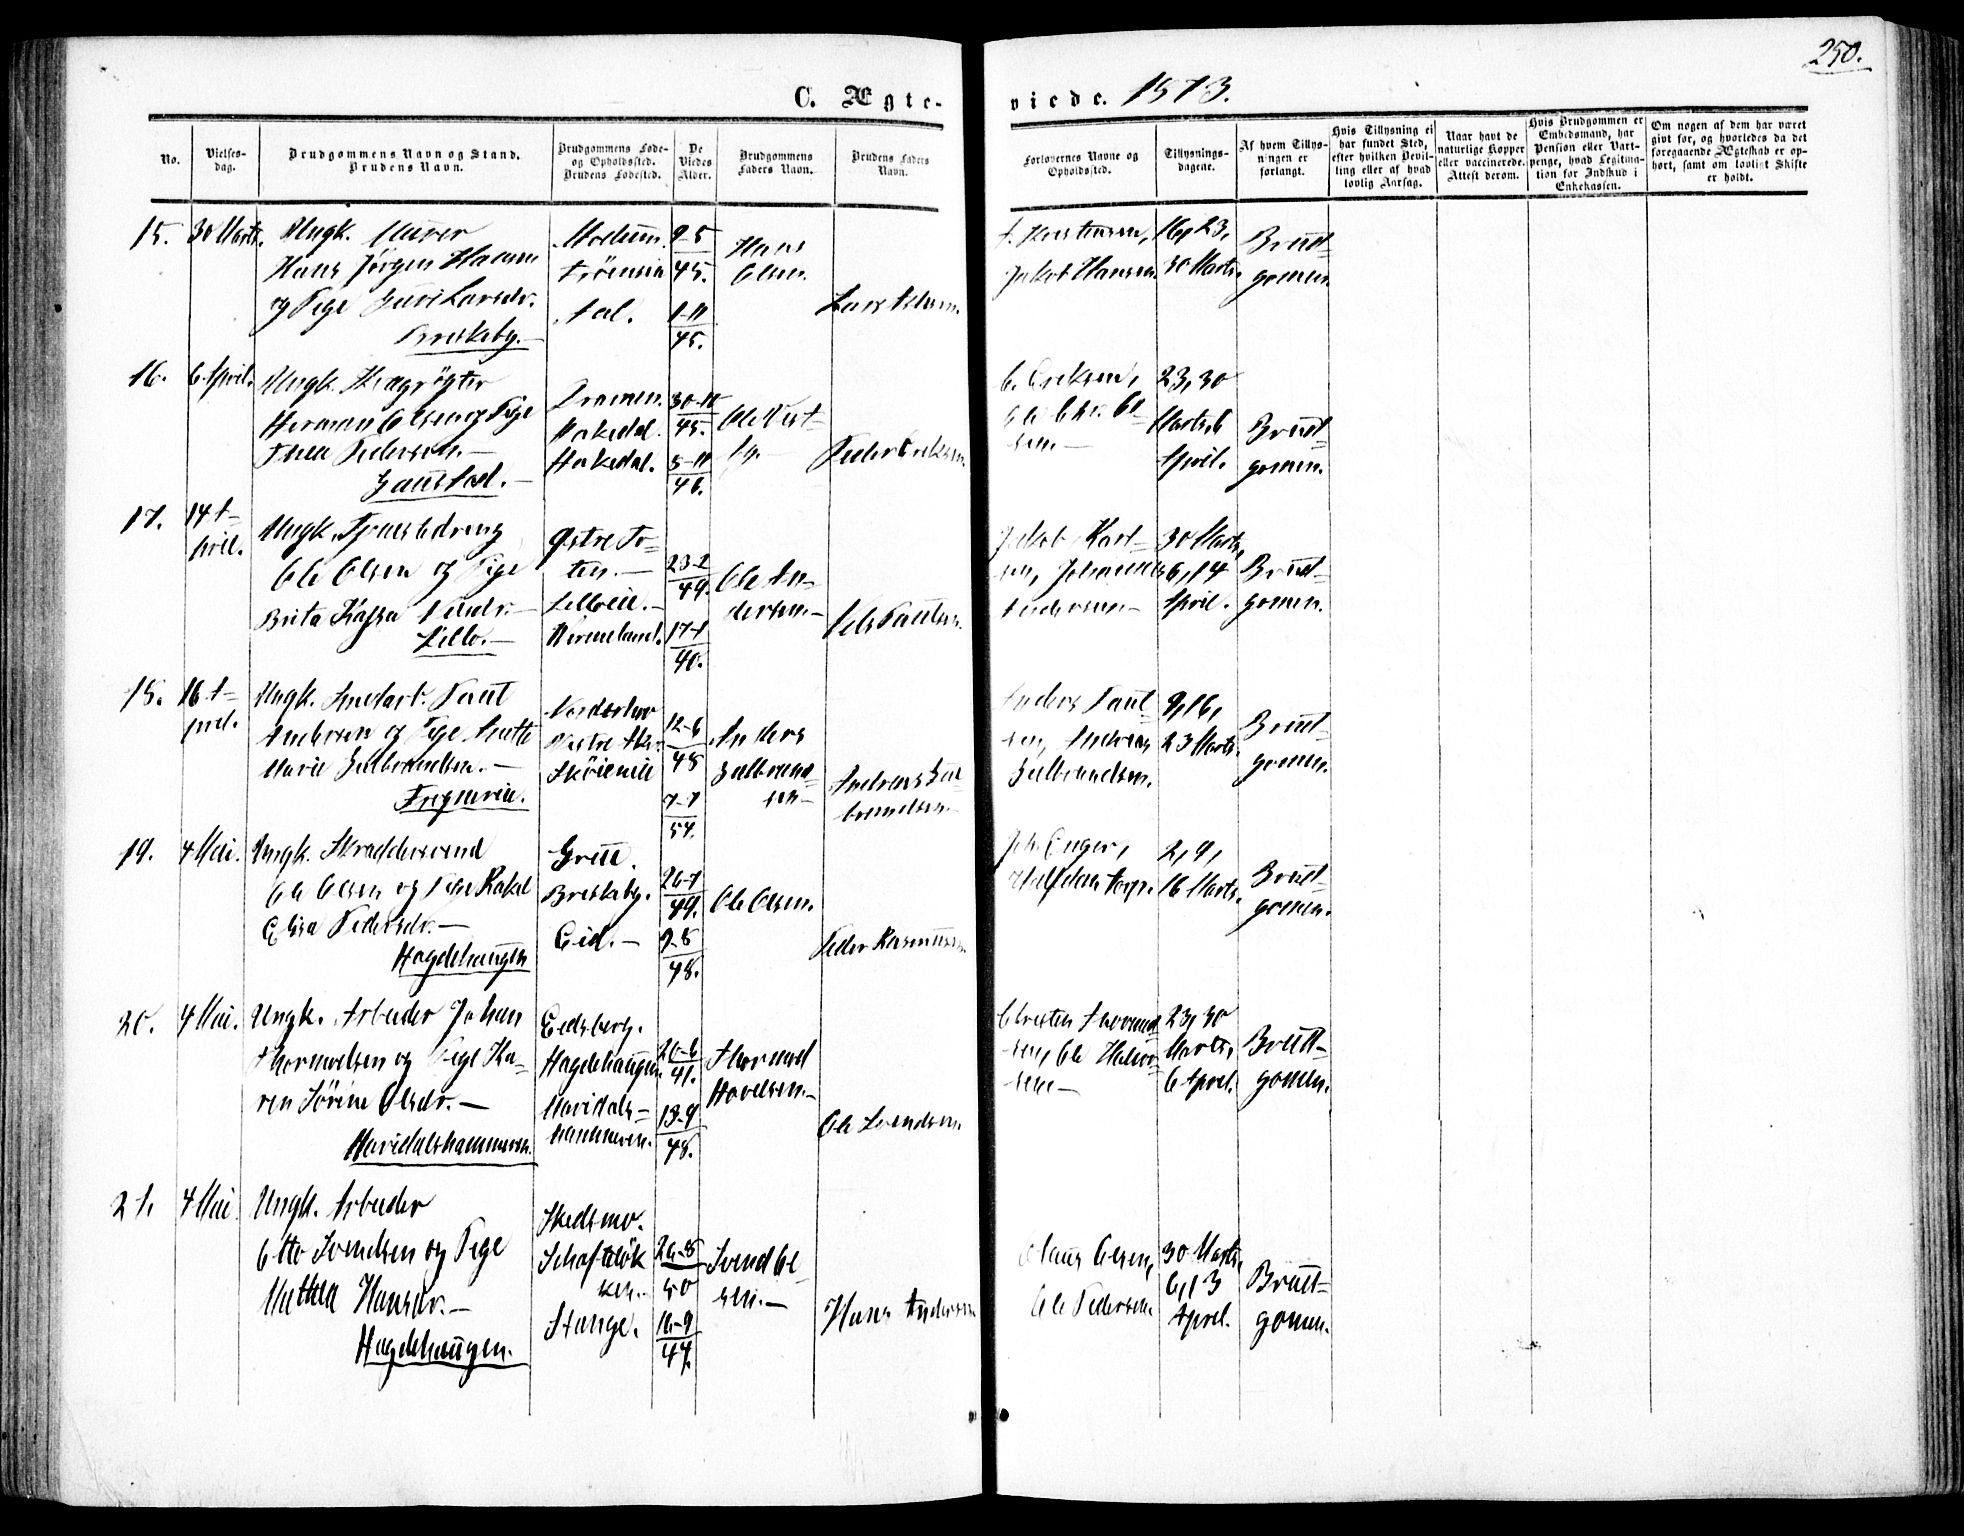 250.
C. Ægteviede. 1873.
No.
Vielsesdag.
Brudgommens Navn og Stand.
Brudens Navn.
Brudgommens Føde- og Opholdssted.
Brudens Fødested.
De Viedes Alder.
Brudgommens Faders Navn.
Brudens Faders Navn.
Forlovernes Navne og Opholdssted.
Tillysningsdagene.
Af hvem Tillysningen er forlangt.
Hvis Tillysning ei har fundet Sted, efter hvilken Bevilling eller af hvad lovlig Aarsag.
Naar havt de naturlige Kopper eller vaccinerede. Attest derom.
Hvis Brudgommen er Embedsmand, har Pension eller Vartpenge, hvad Legitimation for Indskud i Enkekassen.
Om nogen af dem har været givt før, og hvorledes da det foregaaende Ægteskab er ophørt, samt om lovligt Skifte er holdt.
15. 30 Marts.
Ungk. Murer
Hans Jørgen Hansen
og Pige Guri Larsdr.
Briskeby.
Modum.
Aal.
9-5
45.
1-11
45.
Hans
Olsen.
Jakob Hansen.
16, 23,
30 Marts.
Brud-
gomen.
16. 6 April.
Ungk.
Herman Olsen og Pige
Thea Pedersen. —
Gaustad. —
Dramen.
Hakedal.
Hakedal.
30-11
45.
5-11
46.
Peder Eriksen.
C. Eriksen,
Ole Chr. Ol-
sen. —
23, 30
Marts, 6
April.
Brud-
gomen.
17. 14 A-
pril.
Ungk. Tjenestedreng
Ole Olsen og Pige
Brita Kajsa Nilsdr. —
Lillo. —
Østre To-
ten. —
Lilloeie. —
Vermeland.
23-2
49.
17-1
40.
Ole An-
dersen. —
Nils Paulsen.
Jakob Karl-
sen, Johannes
Andersen —
30 Marts,
6, 14
April.
Brud-
gomen.
18. 16 A-
pril.
Ungk. Snedkerarb. Paul
Andersen og Pige Anette
Marie Gulbrandsen. —
Frognereie.
Nordrehov
Vestre Aker.
Skøieneie
12-6
48
7-7
54.
Anders
Gulbrand-
sen —
Andreas Gul-
brandsen —
Anders Paul-
sen, Andreas
Gulbrandsen.
9, 16,
23 Marts.
Brud-
gomen.
19. 4 Mai.
Ungk. Skreddersvend
Ole Olsen og Pige Rakel
Elisa Pedersdr. —
Hagdehaugen
Grue.
Briskeby.
Eid. —
26-7
49.
9-8
48.
Ole Olsen.
Peder Rasmussen
Joh. Enger,
Halfdan Torp.
2, 9,
16 Marts.
Brud-
gomen.
20. 4 Mai.
Ungk. Arbeider Johan
Thorvaldsen og Pige Ka-
ren Sørine Olsdr. —
Maridalshammeren.
Eidsberg.
Hagdehaugen.
Maridals-
hammeren.
26-6
41.
13-9
48.
Thorvald
Havelsen. —
Ole Svendsen.
Christen Amund-
sen, Ole Halvor-
sen —
23, 30
Marts,
6 April.
Brud-
gomen.
21. 4 Mai
Ungk. Arbeider
Otto Svendsen og Pige
Mathea Hansdr. —
Hagdehaugen.
Skedsmo.
Schafteløk-
ken. —
Stange.
26-8
50
16-9
47.
Svend Ol-
sen. —
Hans Andersen
Claus Olsen,
Ole Pedersen.
30 Marts,
6, 13
April.
Brud-
gomen.